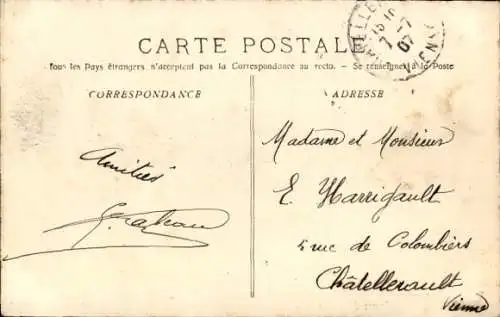 CARTE POSTALE
Tous les Pays étrangers n'acceptent pas la Correspondance au recto. - Se renseigner à la Poste
CORRESPONDANCE
ADRESSE
Amitiés
Madame et Monsieur
E. Harrigault
5 rue de Colombiers
Châtellerault
Vienne